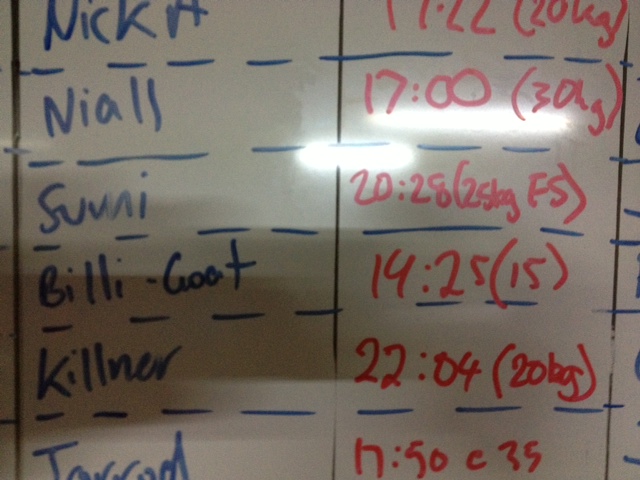 Nick A 17:22 (20kg)
Niall 17:00 (30kg)
Suuni 20:28 (25kg FS)
Billi-Goat 19:25 (15)
Killner 22:04 (20kg)
Jarrod 17:50 c 35